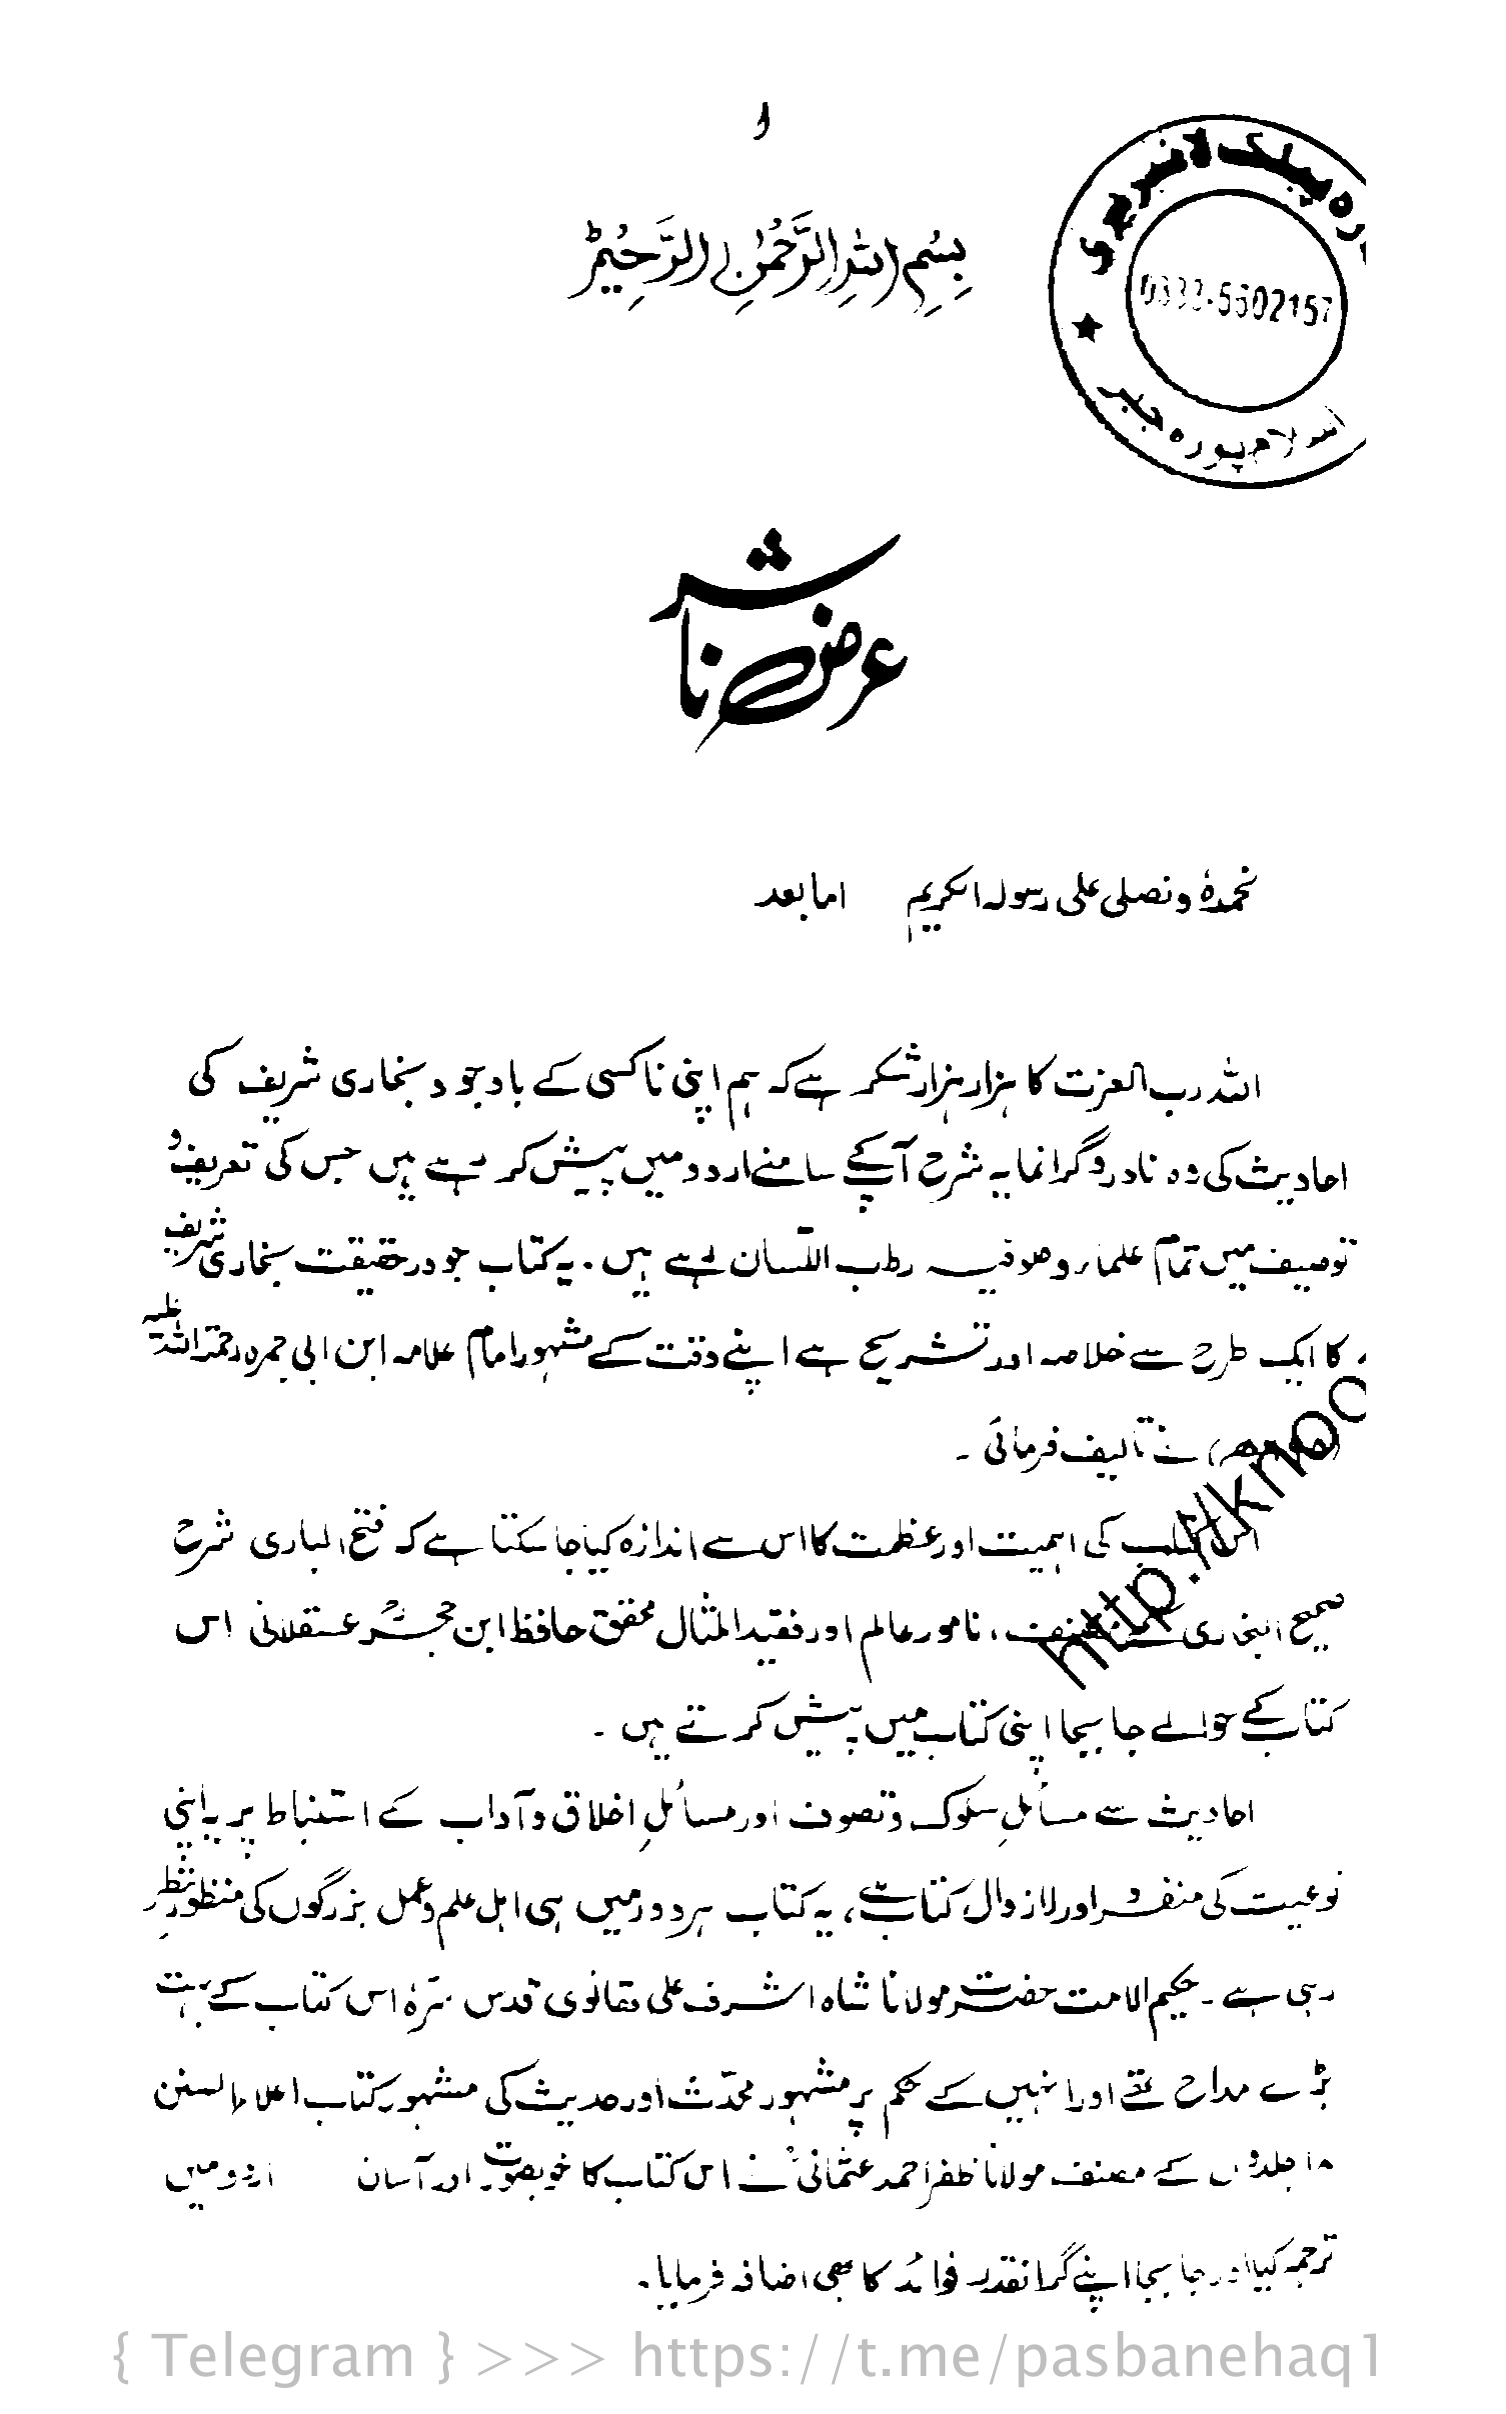 ا
بِسْمِ اللهِ الرَّحْمٰنِ الرَّحِيْمِ
ره پبلک لائبریری
0333-5602157
اسلام پوره جبر
عرض ناشر
نحمدهٗ ونصلی علی رسولہ الکریم اما بعد
اللہ رب العزت کا ہزار ہزار شکر ہے کہ ہم اپنی ناکسی کے باوجود بخاری شریف کی
احادیث کی وہ نادر و گرانمایہ شرح آپکے سامنے اردو میں پیش کر رہے ہیں جس کی تعریف و
توصیف میں تمام علماء وصوفیہ رطب اللسان رہے ہیں۔ یہ کتاب جو درحقیقت بخاری شریف
کا ایک طرح سے خلاصہ اور تشریح ہے اپنے وقت کے مشہور امام علامہ ابن ابی جمرہ رحمۃ اللہ علیہ
نے تالیف فرمائی ۔
اس کتاب کی اہمیت اور عظمت کا اس سے اندازہ کیا جا سکتا ہے کہ فتح الباری شرح
صحیح البخاری کے مصنف، نامور عالم اور فقید المثال محقق حافظ ابن حجر عسقلانی اس
کتاب کے حوالے جا بجا اپنی کتاب میں پیش کرتے ہیں ۔
احادیث سے مسائلِ سلوک وتصوف اور مسائلِ اخلاق وآداب کے استنباط پر یہ اپنی
نوعیت کی منفرد اور لازوال کتاب ہے، یہ کتاب ہر دور میں ہی اہل علم وعمل بزرگوں کی منظورِ نظر
رہی ہے ۔ حکیم الامت حضرت مولانا شاہ اشرف علی تھانوی قدس سرّہٗ اس کتاب کے بہت
بڑے مداح تھے اور انہیں کے حکم پر مشہور محدّث اور حدیث کی مشہور کتاب اعلاء السنن
۱۸ جلدوں کے مصنف مولانا ظفر احمد عثمانیؒ نے اس کتاب کا خوبصورت اور آسان اردو میں
ترجمہ کیا اور جا بجا اپنے گرانقدر فوائد کا بھی اضافہ فرمایا۔
http://knoo
{ Telegram } >>> https://t.me/pasbanehaq1